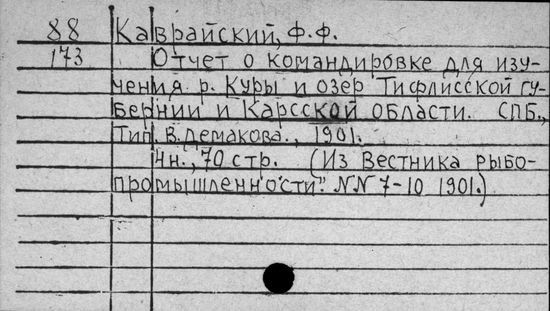 88 Каврайский, Ф.Ф.
173 Отчет о командировке для изу-
чения р. Куры и озер Тифлисской гу-
бернии и Карсской области. СПБ.,
Тип. В. Демакова., 1901.
4н., 70 стр. (Из Вестника рыбо-
промышленности". NN 7-10 1901.)